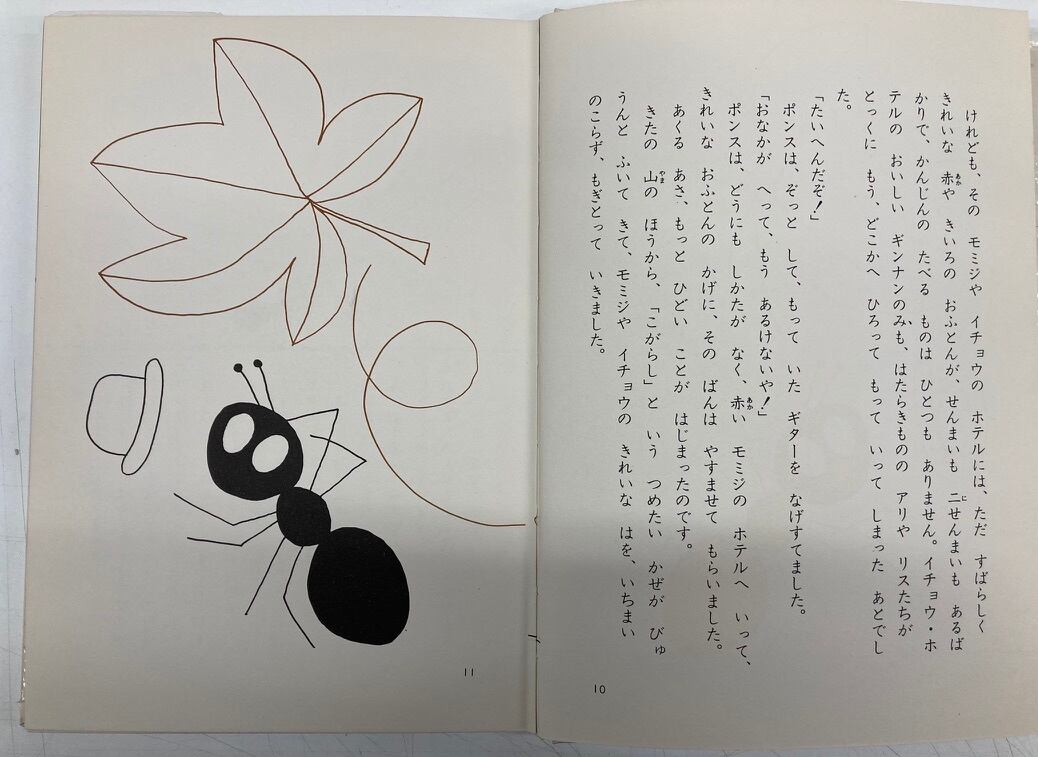 けれども、その モミジや イチョウの ホテルには、ただ すばらしく
きれいな 赤や きいろの おふとんが、せんまいも 二せんまいも あるば
かりで、かんじんの たべる ものは ひとつも ありません。イチョウ・ホ
テルの おいしい ギンナンのみも、はたらきものの アリや リスたちが
とっくに もう、どこかへ ひろって もって いって しまった あとでし
た。
「たいへんだぞ！」
ポンスは、ぞっと して、もって いた ギターを なげすてました。
「おなかが へって、もう あるけないや！」
ポンスは、どうにも しかたが なく、赤い モミジの ホテルへ いって、
きれいな おふとんの かげに、その ばんは やすませて もらいました。
あくる あさ、もっと ひどい ことが はじまったのです。
きたの 山の ほうから、「こがらし」と いう つめたい かぜが びゅ
うんと ふいて きて、モミジや イチョウの きれいな はを、いちまい
のこらず、もぎとって いきました。
10
11